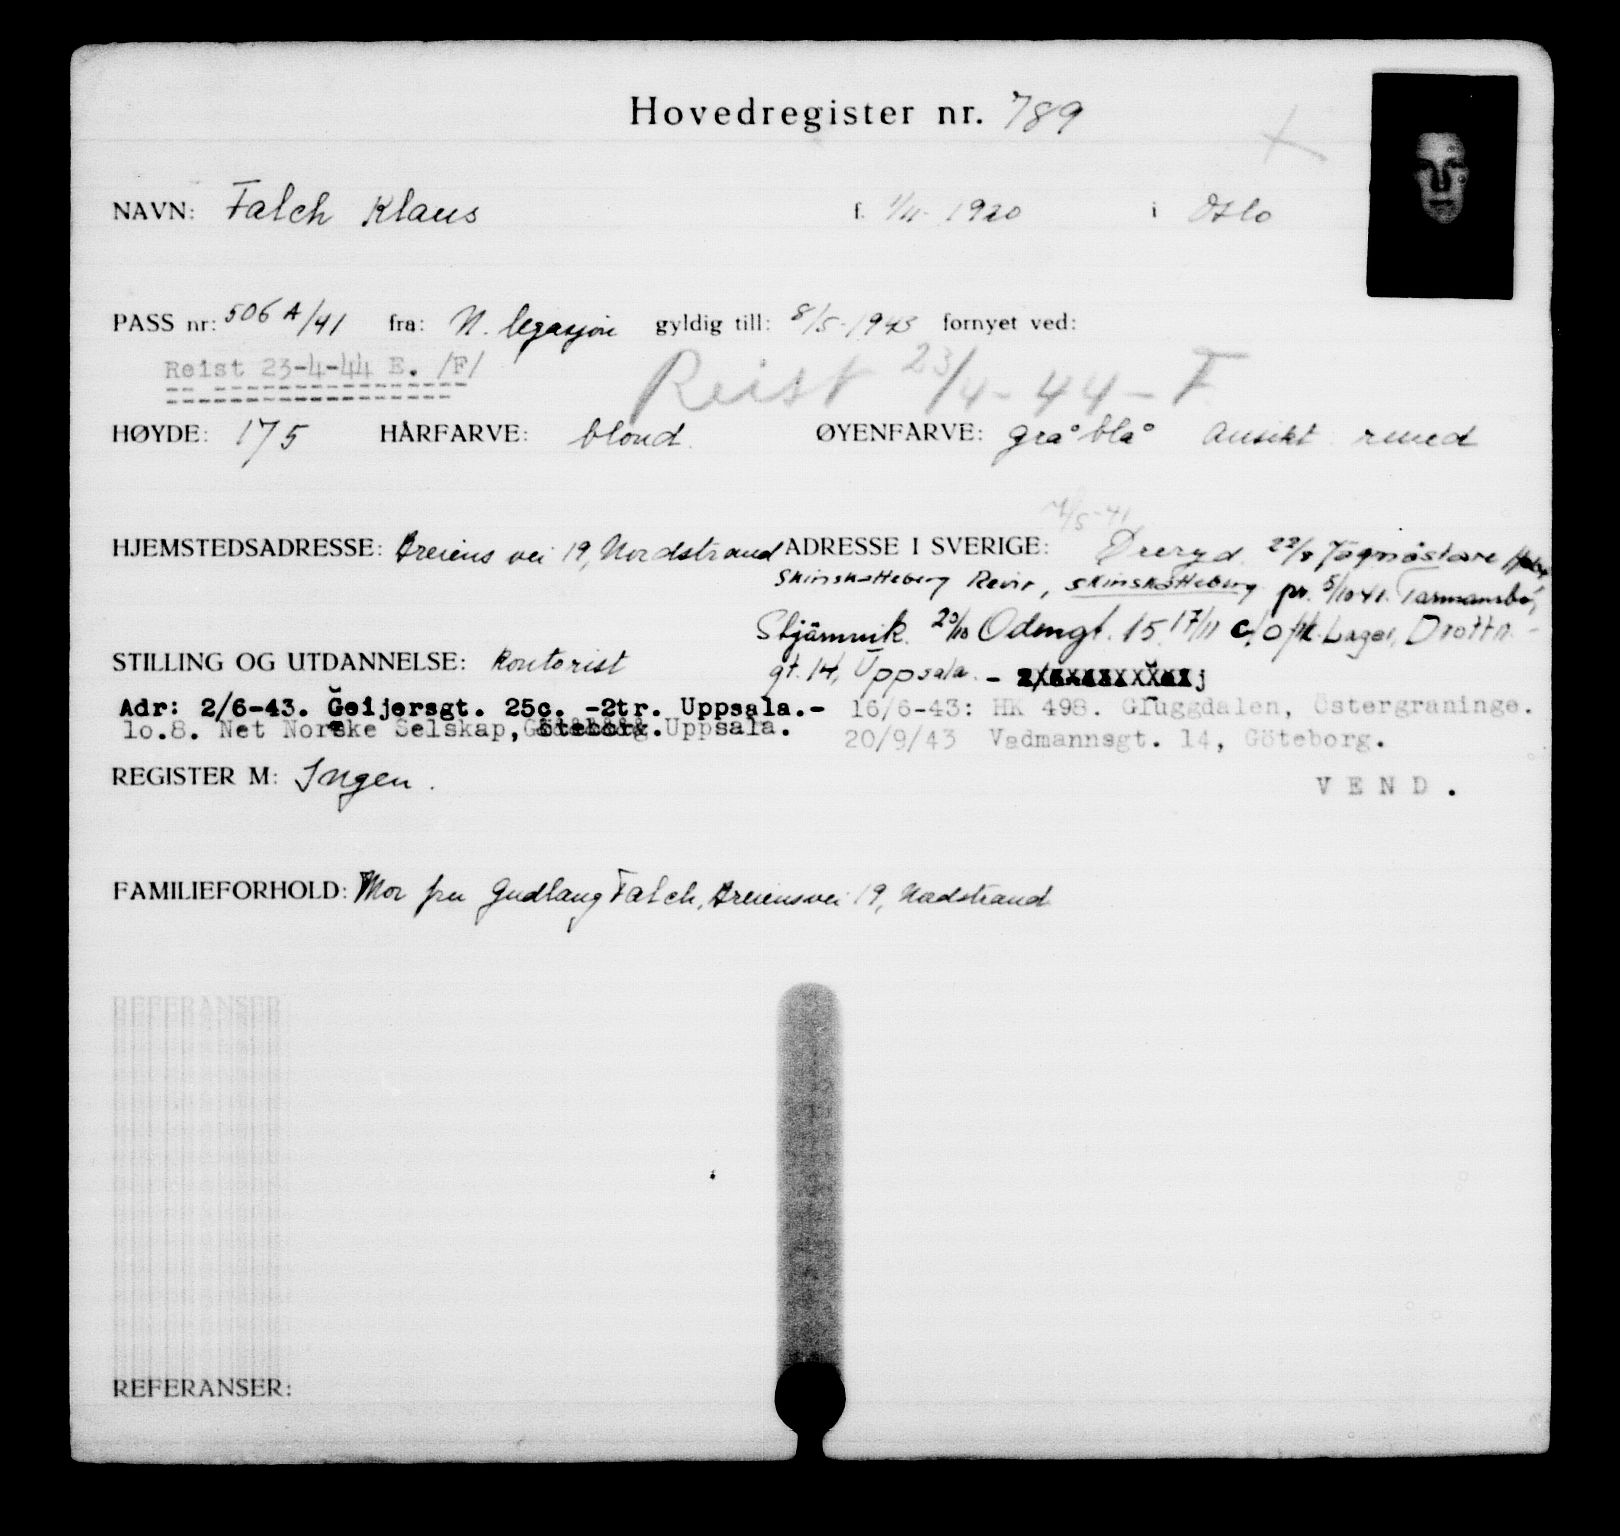 Hovedregister nr. 789
NAVN: Falch Klaus f. 1/11- 1920 i Oslo
PASS nr: 506 A/41 fra: N. legasjon gyldig till: 8/5-1943 fornyet ved:
Reist 23-4-44 E. /F/
Reist 23/4-44-F
HØYDE: 175 HÅRFARVE: blond. ØYENFARVE: grå blå Ansikt rund
HJEMSTEDSADRESSE: Breiens vei 19, Nordstrand ADRESSE I SVERIGE: Öreryd 22/8
Skinskatteberg Revir, Skinskatteberg pr. 5/10 41.
Stjärnvik. 20/10 Odengt. 15. 17/11 c/o Lager, Drottn.-
STILLING OG UTDANNELSE: Kontorist gt. 14, Uppsala. -
Adr: 2/6-43. Geijersgt. 25c. -2tr. Uppsala.- 16/6-43: HK 498. Gluggdalen, Östergraninge.
1o.8. Net Norske Selskap, Göteborg. Uppsala. 20/9/43 Vadmannsgt. 14, Göteborg.
REGISTER M: Ingen.
V E N D .
FAMILIEFORHOLD: Mor fru Gudlaug Falch, Breiensvei 19, Nordstrand
REFERANSER
REFERANSER: